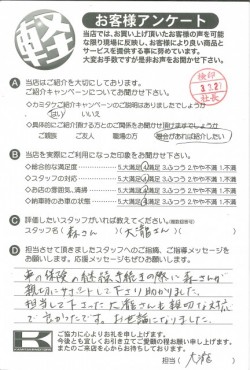 軽
お客様アンケート
当店では、お買い上げ頂いたお客様の声を可能
な限り現場に反映し、お客様により良い商品と
サービスを提供する事に努めています。
大変お手数ですが是非お声をお聞かせ下さい。
検印
社長
A 当店はご紹介を大切にしております。
ご紹介キャンペーンについてお聞かせ下さい。
◇カミタケご紹介キャンペーンのご説明はありましたでしょうか
はい いいえ
◇具体的にご紹介頂ける方とのご関係をお聞かせ頂けますでしょうか
ご親族 ご友人 職場の方 機会があれば紹介したい
B 当店を実際にご利用になった印象をお聞かせ下さい。
◇総合的な満足度 5.大満足 4.満足 3.ふつう 2.やや不満 1.不満
◇スタッフの対応 5.大満足 4.満足 3.ふつう 2.やや不満 1.不満
◇お店の雰囲気、清掃 5.大満足 4.満足 3.ふつう 2.やや不満 1.不満
◇納車時のお車の状態 5.大満足 4.満足 3.ふつう 2.やや不満 1.不満
C 評価したいスタッフがいれば教えてください。(複数回答可)
スタッフ名( 森さん )( 大瀧さん )
D 担当させて頂きましたスタッフへのご指摘、ご指導メッセージを
お願いします。応援メッセージもぜひお願い致します!
車の保険の継続手続きの際に森さんが
親切にサポートして下さり助かりました。
担当して下さった大瀧さんも親切な対応
で良かったです。お世話になりました。
ご協力に心よりお礼を申し上げます。
今後とも宜しくお引き立てご愛顧の程お願い申し上げます。
またのご来店を心よりお待ちしております。
担当( 大瀧 )